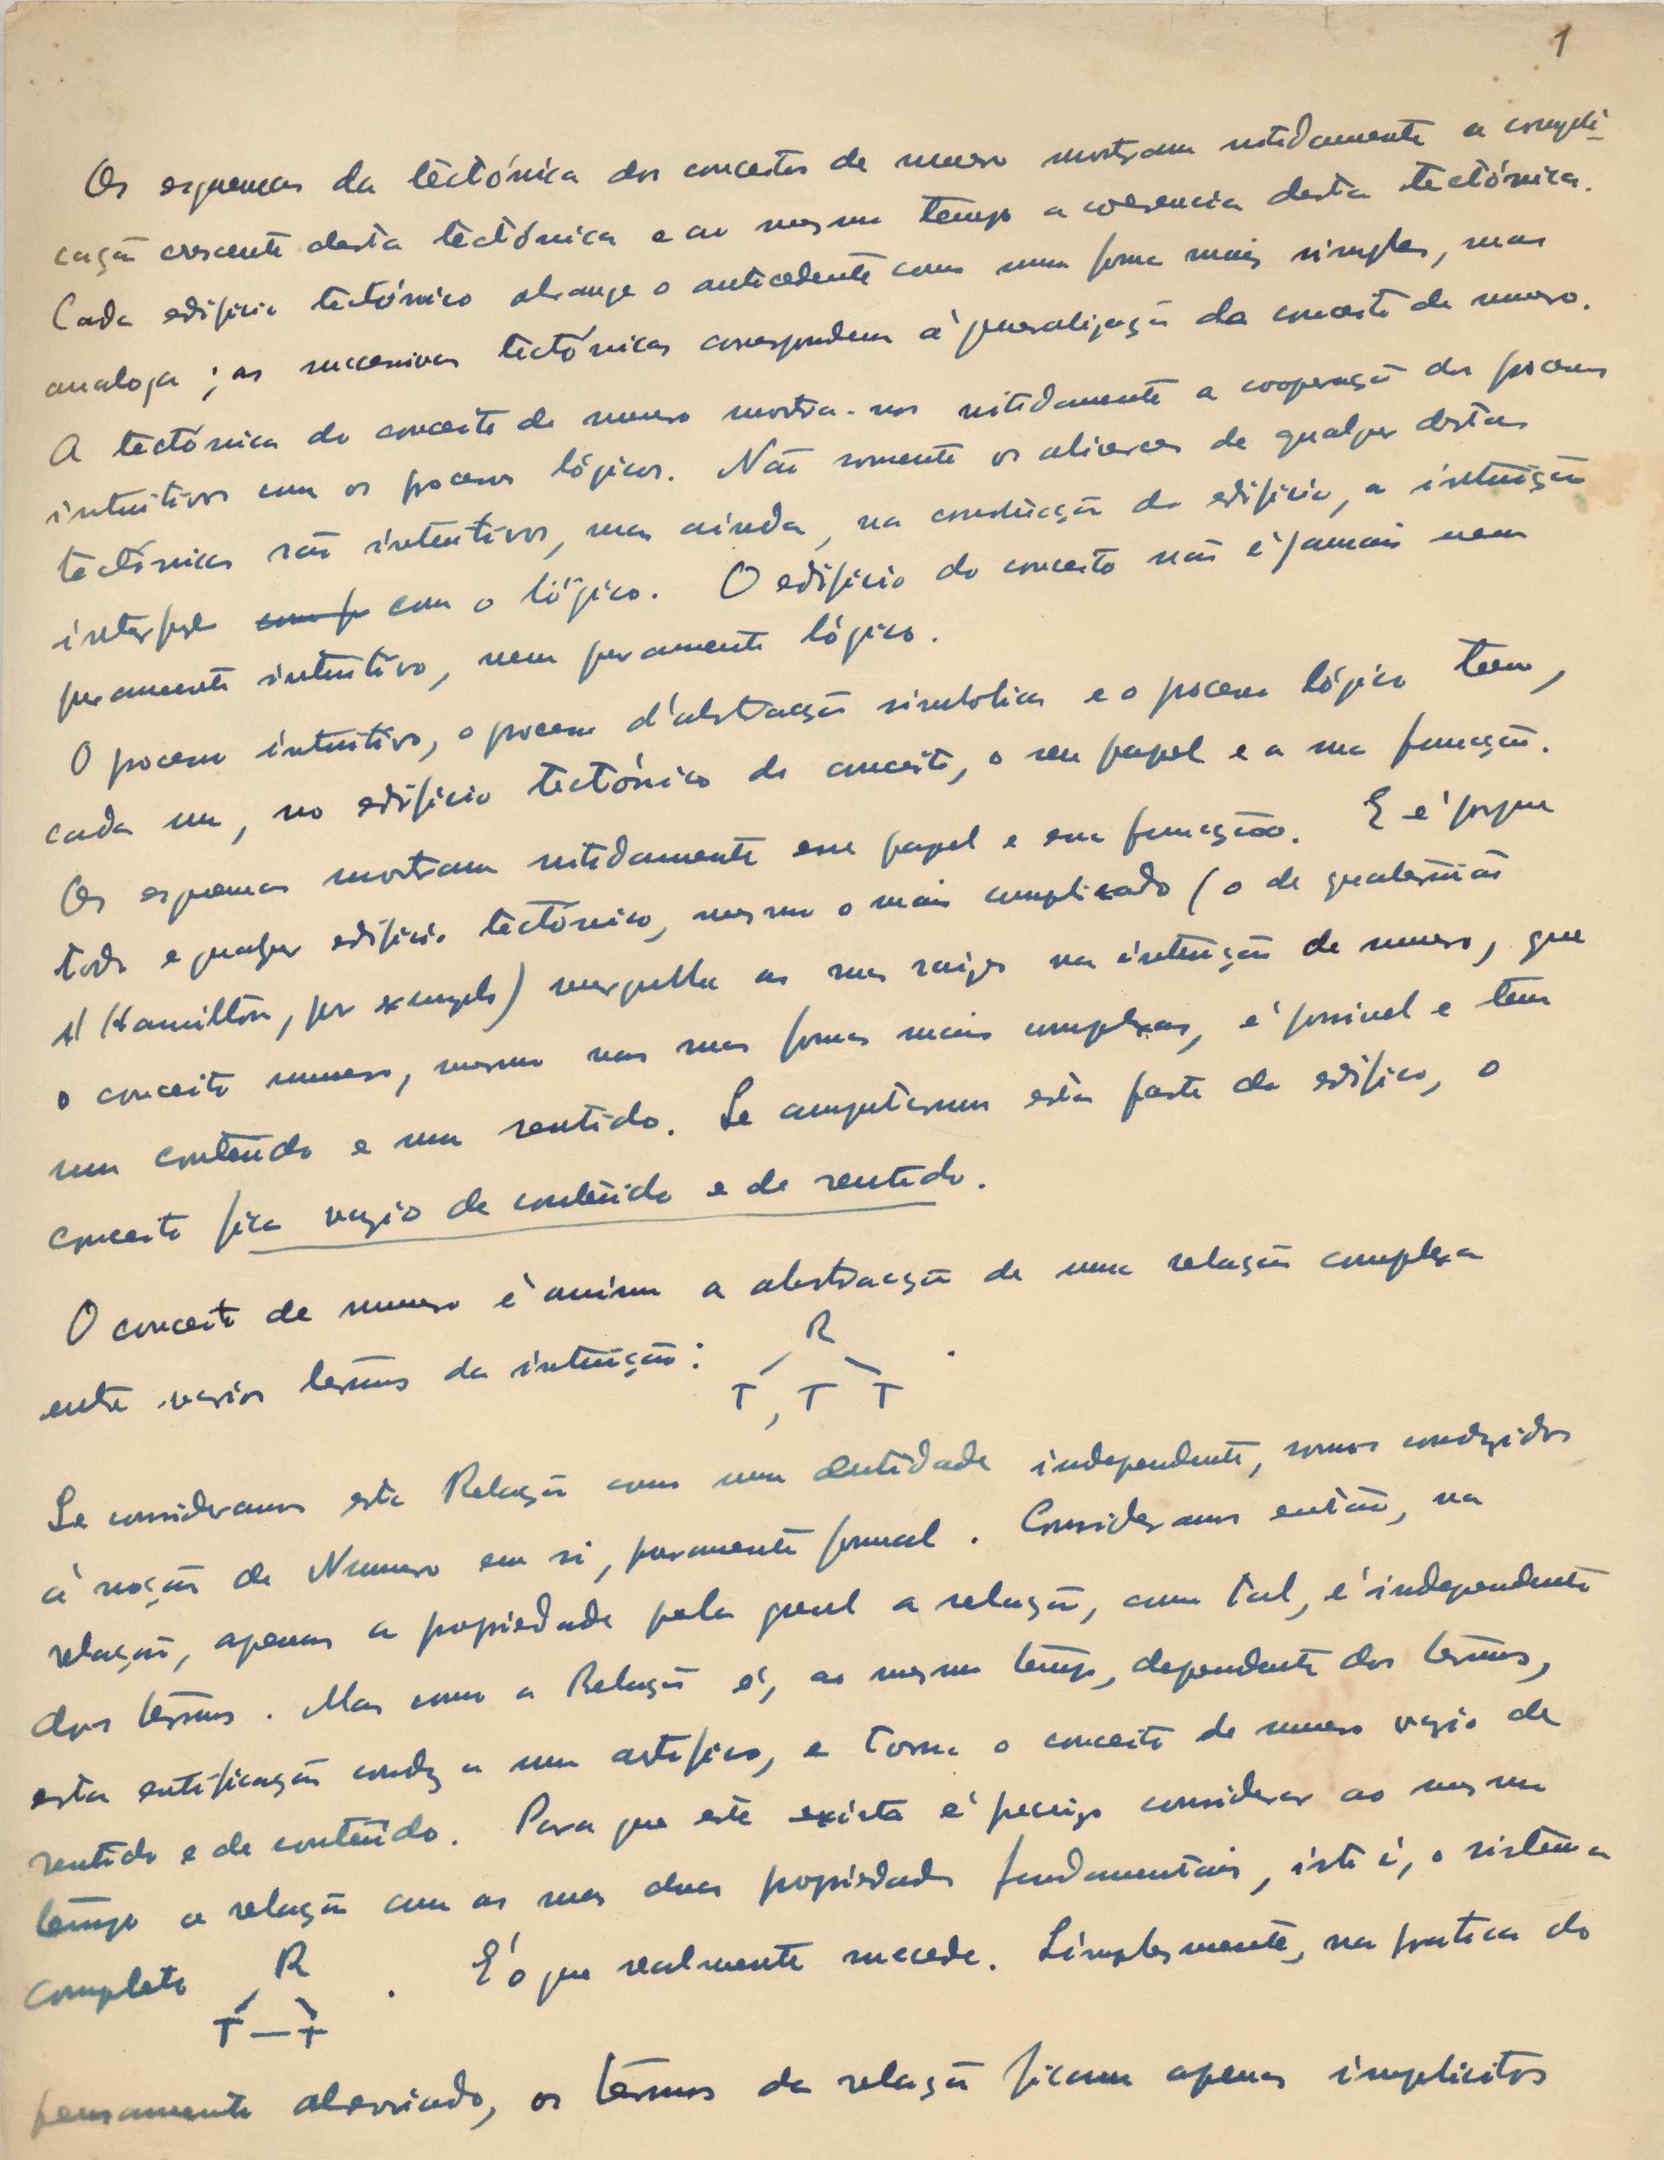 1
Os esquemas da tectónica dos conceitos de numero mostram nitidamente a compli-
cação crescente desta tectónica e ao mesmo tempo a coerencia desta tectónica.
Cada edificio tectónico abrange o antecedente como uma forma mais simples, mas
analoga; as sucessivas tectónicas correspondem á generalização do conceito de numero.
A tectónica do conceito de numero mostra-nos nitidamente a cooperação dos processos
intuitivos com os processos lógicos. Não somente os alicerces de qualquer destas
tectónicas são intuitivos, mas ainda, na construcção do edificio, a intuição
interfere com o lógico. O edificio do conceito não é jamais nem
puramente intuitivo, nem puramente lógico.
O processo intuitivo, o processo d'abstracção simbolica e o processo lógico tem,
cada um, no edificio tectónico do conceito, o seu papel e a sua funcção.
Os esquemas mostram nitidamente esse papel e essa funcção. E é porque
todo e qualquer edificio tectónico, mesmo o mais complicado (o de quaterniões
d'Hamilton, por exemplo) mergulha as suas raizes na intuição de numero, que
o conceito numero, mesmo nas suas formas mais complexas, é possivel e tem
um conteúdo e um sentido. Se amputarmos esta parte do edificio, o
conceito fica vazio de conteúdo e de sentido.
O conceito de numero é assim a abstracção de uma relação complexa
entre varios termos da intuição: R .
T, T T
Se consideramos esta Relação como uma entidade independente, somos conduzidos
á noção de Numero em si, puramente formal. Consideramos então, na
relação, apenas a propriedade pela qual a relação, como tal, é independente
dos termos. Mas como a Relação é, ao mesmo tempo, dependente dos termos,
esta entificação conduz a um artificio, e torna o conceito de numero vazio de
sentido e de conteúdo. Para que este exista é preciso considerar ao mesmo
tempo a relação com as suas duas propriedades fundamentais, isto é, o sistema
completo R . É o que realmente sucede. Simplesmente, na pratica do
T — T
pensamento abreviado, os termos da relação ficam apenas implicitos